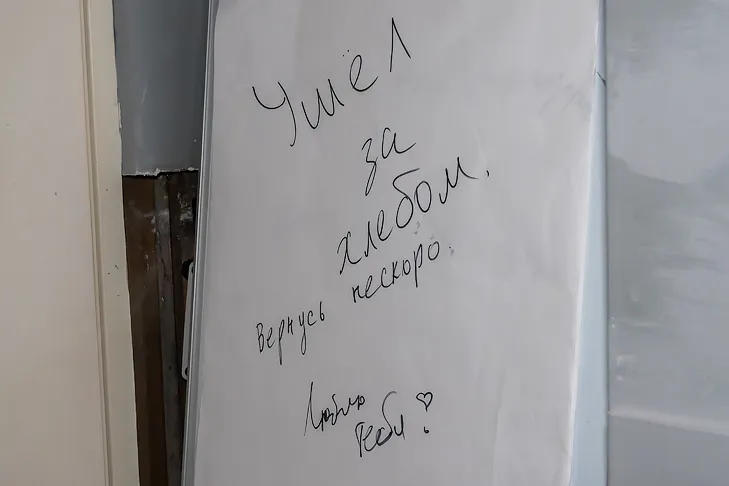 Ушёл
за
хлебом.
Вернусь нескоро.
Люблю
тебя!